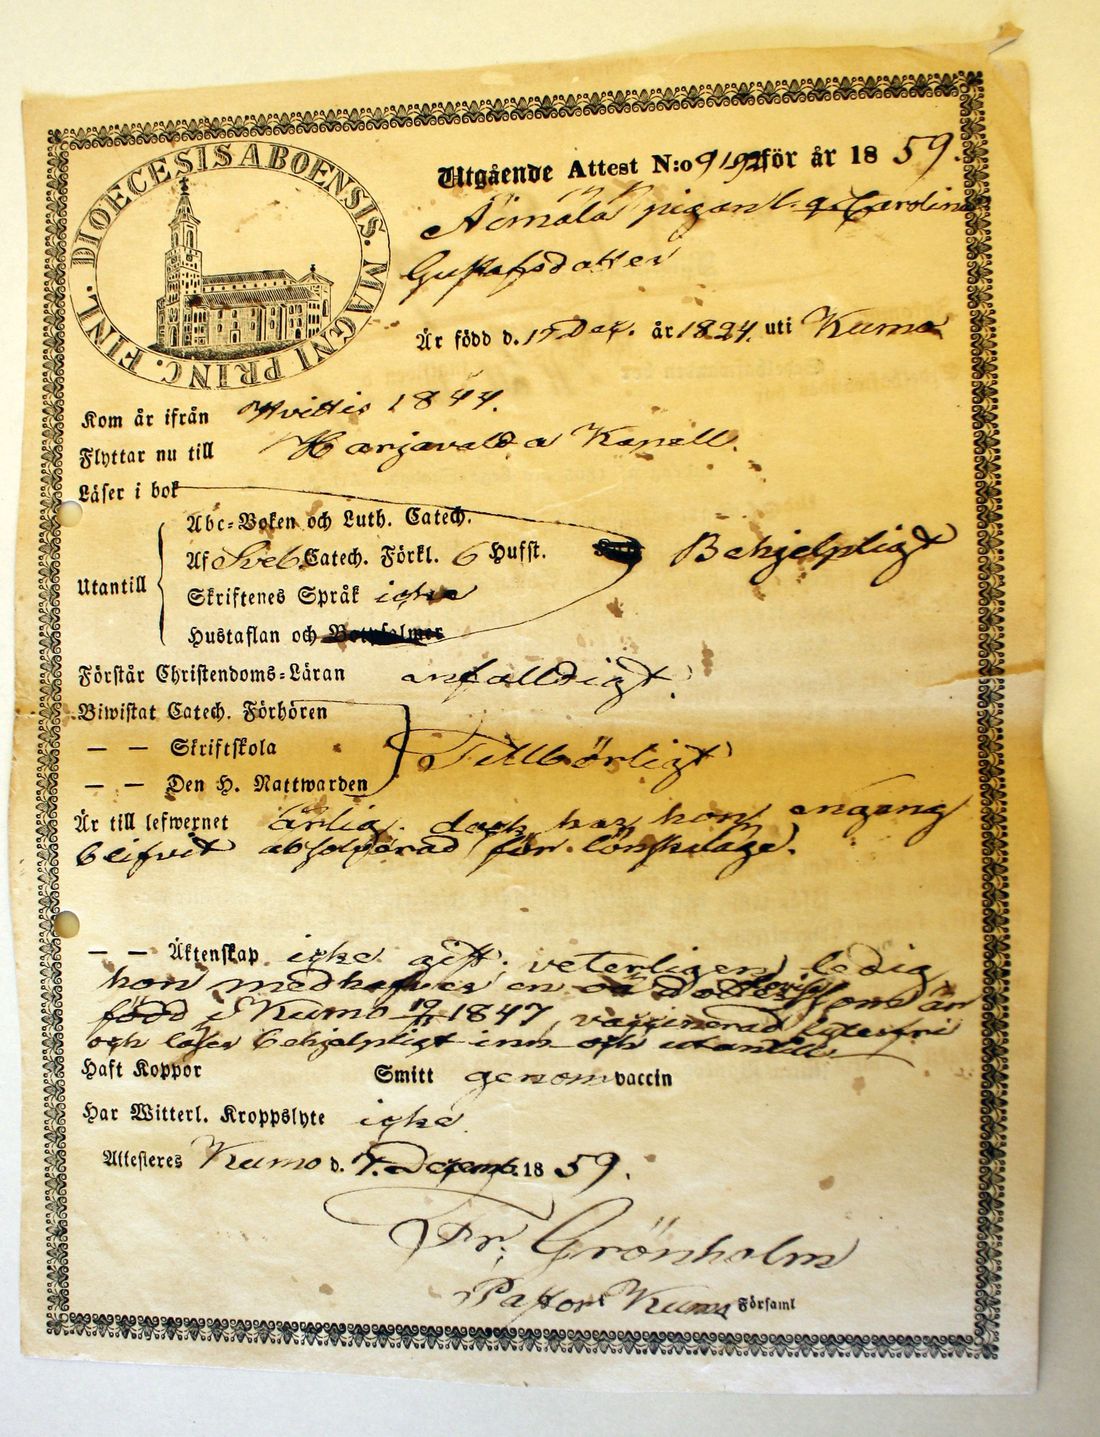 DIOECESIS ABOENSIS. MAGNI PRINC. FINL.
Utgående Attest N:o 9192 för år 1859.
pigan Carolina
Gustafsdotter
Är född d. 15 Dec. år 1824. uti Kumo
Kom år ifrån Hvittis 1844.
Flyttar nu till Harjavalda Kapell.
Läser i bok
Abc-Boken och Luth. Catech.
Utantill
Af Sveb. Catech. Förkl. 6 Hufst. Behjelpligt
Skriftenes Språk icke
Hustaflan och Botpsalmer
Förstår Christendoms-Läran enfalldigt.
Biwistat Catech. Förhören
— — Skriftskola Tillbörligt
— — Den H. Nattwarden
Är till lefwernet ärlig. dock har hon engang
blifvit absolverad för lönskaläge.
— — Äktenskap icke gift. veterligen ledig
hon medhafver en dotter Lovisa som är
född i Kumo 19/11 1847, vaccinerad
och läser behjelpligt inn och utantill.
Haft Koppor Smitt genom vaccin
Har Witterl. Kroppslyte icke
Attesteres Kumo d. 7. Decemb. 1859.
Fr. Grönholm
Pastor i Kumo Församl